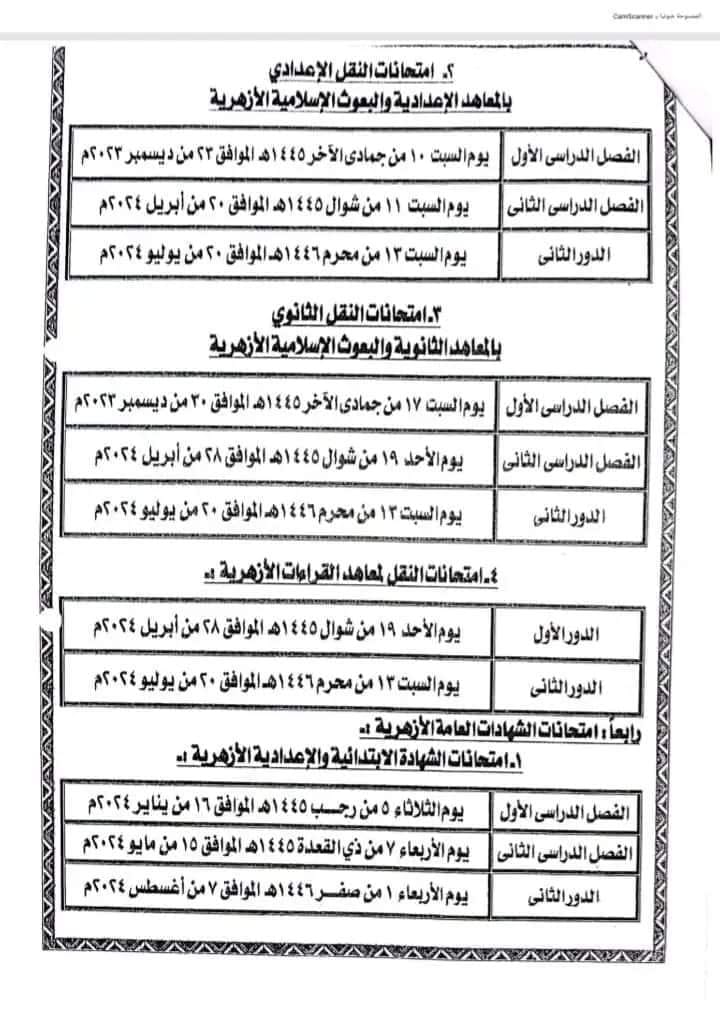 الممسوحة ضوئيا بـ CamScanner
٢ـ امتحانات النقل الإعدادي
بالمعاهد الإعدادية والبعوث الإسلامية الأزهرية
الفصل الدراسى الأول يوم السبت ١٠ من جمادى الآخر ١٤٤٥هـ الموافق ٢٣ من ديسمبر ٢٠٢٣م
الفصل الدراسى الثانى يوم السبت ١١ من شوال ١٤٤٥هـ الموافق ٢٠ من أبريل ٢٠٢٤م
الدور الثانى يوم السبت ١٣ من محرم ١٤٤٦هـ الموافق ٢٠ من يوليو ٢٠٢٤م
٣ـ امتحانات النقل الثانوي
بالمعاهد الثانوية والبعوث الإسلامية الأزهرية
الفصل الدراسى الأول يوم السبت ١٧ من جمادى الآخر ١٤٤٥هـ الموافق ٣٠ من ديسمبر ٢٠٢٣م
الفصل الدراسى الثانى يوم الأحد ١٩ من شوال ١٤٤٥هـ الموافق ٢٨ من أبريل ٢٠٢٤م
الدور الثانى يوم السبت ١٣ من محرم ١٤٤٦هـ الموافق ٢٠ من يوليو ٢٠٢٤م
٤ـ امتحانات النقل لمعاهد القراءات الأزهرية :ـ
الدور الأول يوم الأحد ١٩ من شوال ١٤٤٥هـ الموافق ٢٨ من أبريل ٢٠٢٤م
الدور الثانى يوم السبت ١٣ من محرم ١٤٤٦هـ الموافق ٢٠ من يوليو ٢٠٢٤م
رابعاً : امتحانات الشهادات العامة الأزهرية :ـ
١ـ امتحانات الشهادة الابتدائية والإعدادية الأزهرية :ـ
الفصل الدراسى الأول يوم الثلاثاء ٥ من رجــب ١٤٤٥هـ الموافق ١٦ من يناير ٢٠٢٤م
الفصل الدراسى الثانى يوم الأربعاء ٧ من ذي القعدة ١٤٤٥هـ الموافق ١٥ من مايو ٢٠٢٤م
الدور الثانى يوم الأربعاء ١ من صفــر ١٤٤٦هـ الموافق ٧ من أغسطس ٢٠٢٤م